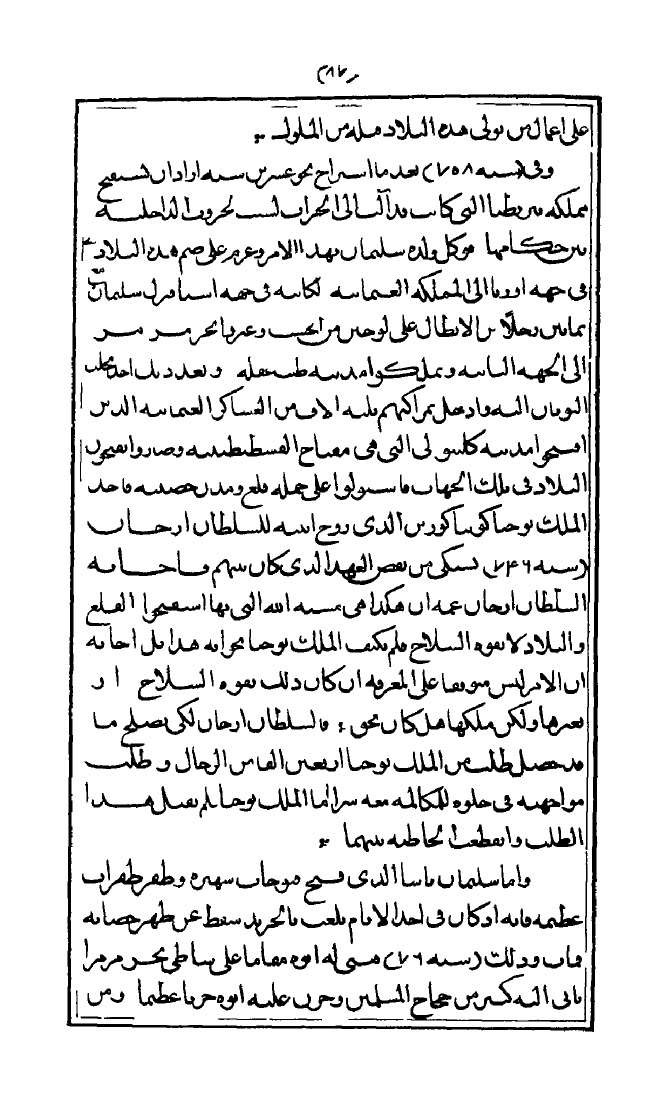 على اعمال من تولى هذه البلاد قبله من الملوك *
وفى (سنة ٧٥٨) بعد ما استراح نحو عشرين سنة اراد ان يستفتح
مملكة بيزنطيا التى كانت قد آلت الى الخراب لسبب الحروب الداخلية
بين حكامها فوكل ولده سليمان بهذا الامر وعزم على ضم هذه البلاد
فى جهة اوروبا الى المملكة العثمانية الكائنة فى جهة اسيا فنزل سليمان
بثمانين رجلا من الابطال على لوحين من الخشب وعبر بالبحر من مرمر
الى الجهة الثانية وتملكوا مدينة طنبغله وبعد ذلك اخذ بجلب
اليونان اليه وادخل بمراكبهم ثلثة الاف من العساكر العثمانية الذين
افتتحوا مدينة كلسبولى التى هى مفتاح القسطنطينية وصاروا يفتحون
البلاد فى تلك الجهات فاستولوا على جملة قلع ومدن حصينة فاخذ
الملك يوحنا كونتاكوزين الذى زوج ابنته للسلطان ارخان
(سنة ٧٤٦) يشتكى من نقض العهد الذى كان بينهم فاجابه
السلطان ارخان عمه ان هكذا هى مشيئة الله التى بها استفتحوا القلع
والبلاد لا بقوة السلاح فلم يكتف الملك يوحنا بجوابه هذا بل اجابه
ان الامر ليس متوقفا على المعرفة ان كان ذلك بقوة السلاح او
بغيرها ولكن ملكها هل كان بحق * فالسلطان ارخان لكى يصلح ما
قد حصل طلب من الملك يوحنا اربعين الفا من الريال وطلب
مواجهته فى خلوة للمكالمة معه سرا اما الملك يوحنا لم يقبل هذا
الطلب وانقطعت المخاطبة بينهما *
واما سليمان باشا الذى فتح فتوحات شهيرة وظفر ظفرات
عظيمة فانه اذ كان فى احد الايام يلعب بالجريد سقط عن ظهر حصانه
فمات وذلك (سنة ٧٦٠) فبنى له ابوه مقاما على شاطى بحر مرمرا
ياتى اليه كثير من حجاج المسلمين وحزن عليه ابوه حزنا عظيما ومن